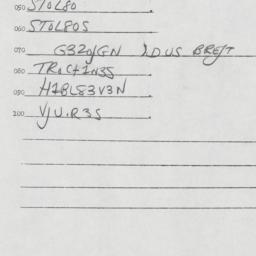 050 STOL80
060 STOL80S
070 G320JGN IDUS BREJT
080 TRACT1N3S
090 H1BL83V3N
200 VJU.R3S